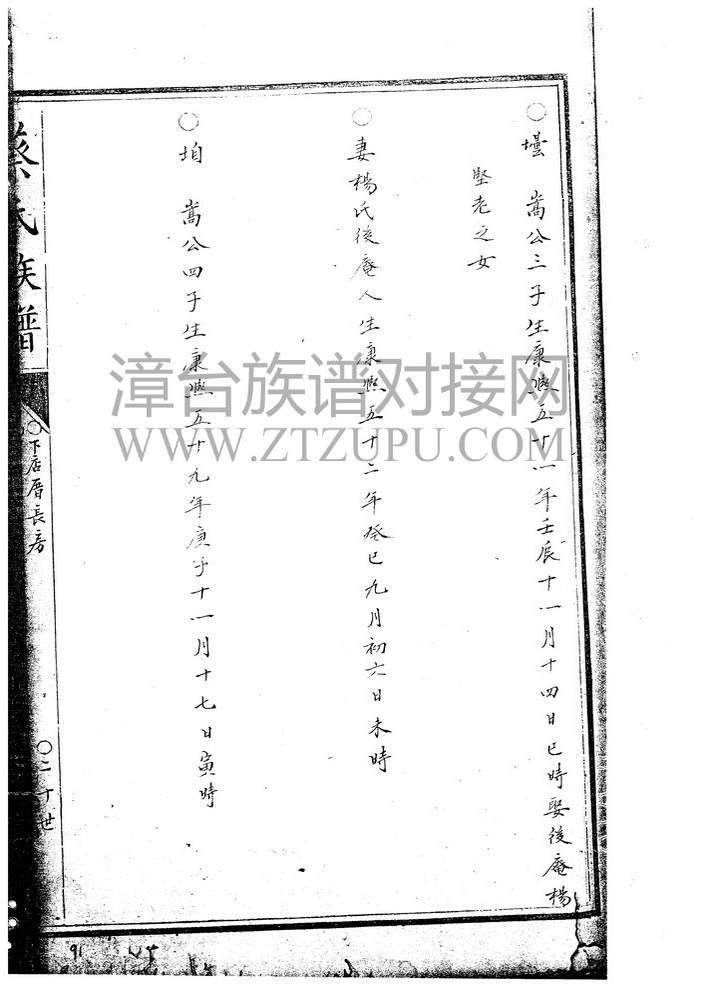 ○壜 嵩公三子生康熙五十一年壬辰十一月十四日巳時娶後庵楊
堅老之女
○妻楊氏後庵人生康熙五十二年癸巳九月初六日未時
○垍 嵩公四子生康熙五十九年庚子十一月十七日寅時
蔡氏族譜
○下店厝長房
○二十世
漳台族谱对接网
WWW.ZTZUPU.COM
91